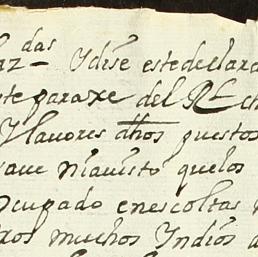 das
az Y dise este declara
te paraxe del Rl
Y lauores dhos puestos
que ni a uisto quelos
ocupado en escoltas
ros muchos Indios